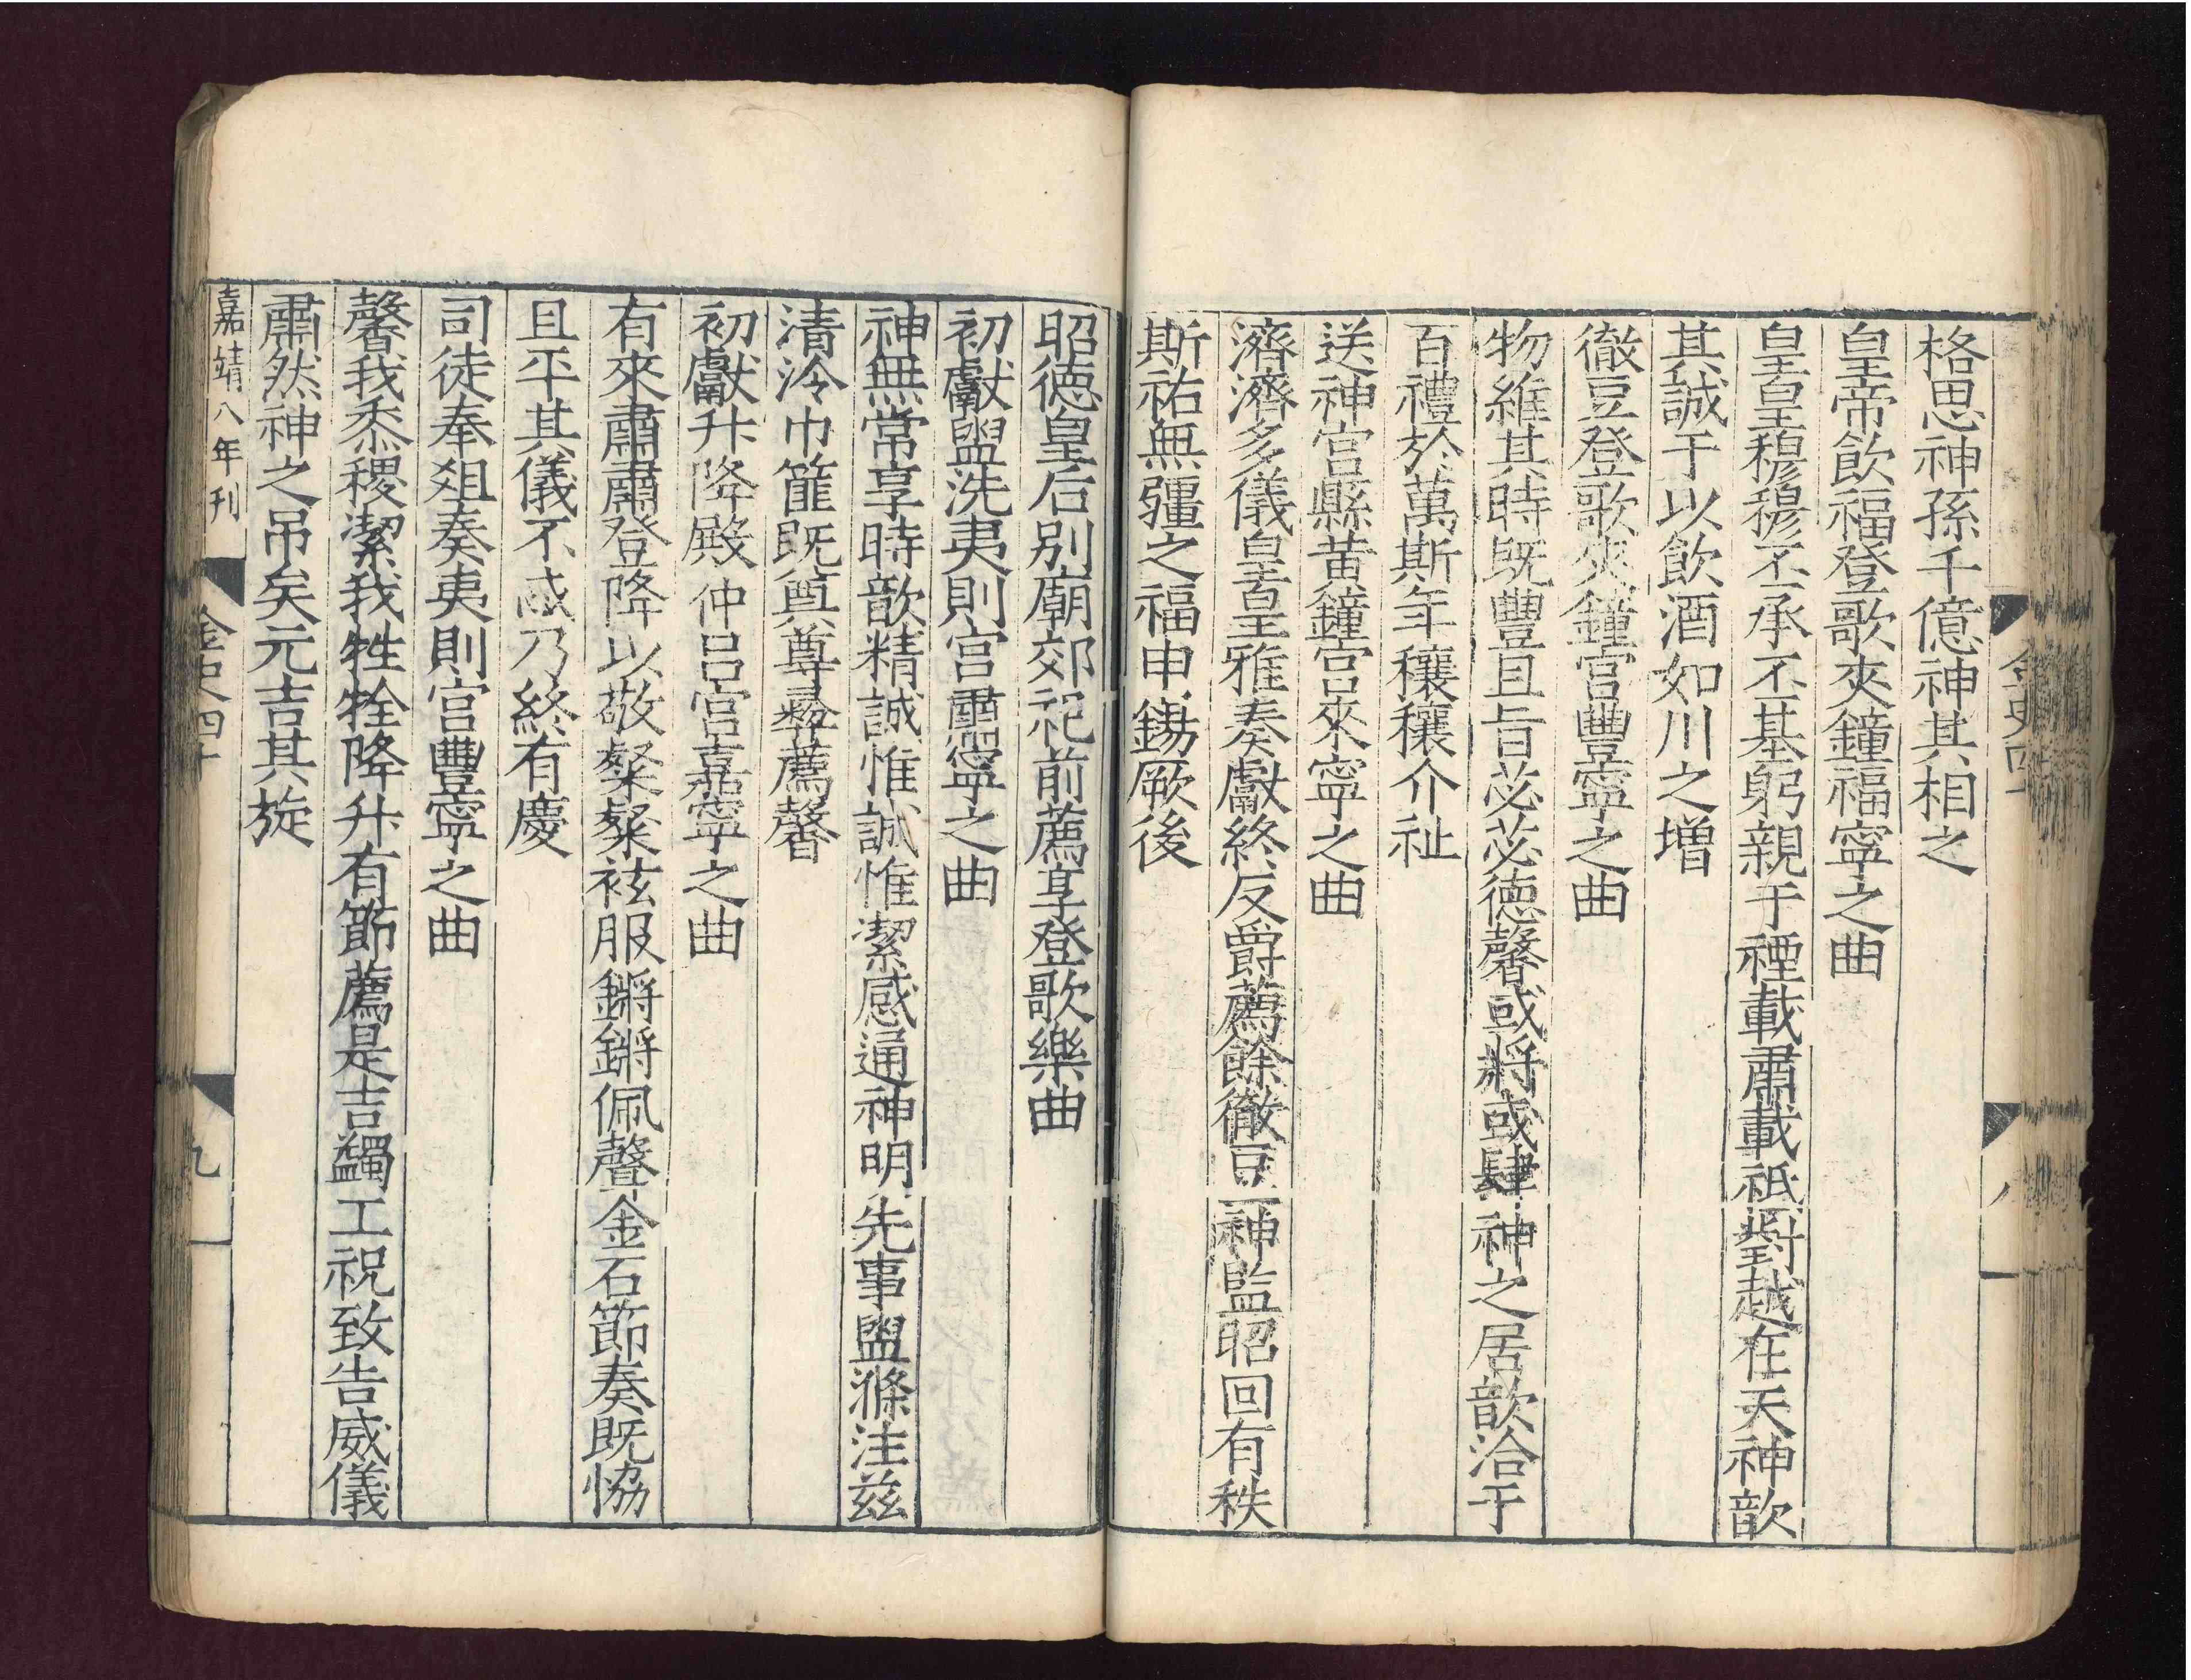 格思神孫千億神其相之
皇帝飲福登歌夾鐘福寧之曲
皇皇穆穆丕承丕基躬親于禋載肅載祗對越在天神歆
其誠于以飲酒如川之增
徹豆登歌夾鐘宮豐寧之曲
物維其時既豐且旨苾苾德馨或將或肆神之居歆洽于
百禮於萬斯年穰穰介祉
送神宮縣黃鐘宮來寧之曲
濟濟多儀皇皇雅奏獻終反爵薦餘徹豆神監昭回有秩
斯祐無疆之福申錫厥後
昭德皇后別廟郊祀前薦享登歌樂曲
初獻盥洗夷則宮肅寧之曲
神無常享時歆精誠惟誠惟潔感通神明先事盥滌注茲
清泠巾篚既奠尊彝薦馨
初獻升降殿仲呂宮嘉寧之曲
有來肅肅登降以敬粲粲袨服鏘鏘佩聲金石節奏既恊
且平其儀不忒乃終有慶
司徒奉俎奏夷則宮豐寧之曲
馨我黍稷潔我牲牷降升有節薦是吉蠲工祝致告威儀
肅然神之吊矣元吉其旋
嘉靖八年刊
金史四十
九